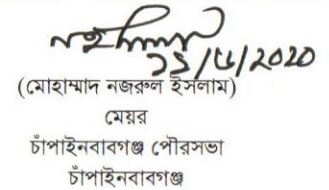 (মোহাম্মাদ নজরুল ইসলাম)
মেয়র
চাঁপাইনবাবগঞ্জ পৌরসভা
চাঁপাইনবাবগঞ্জ